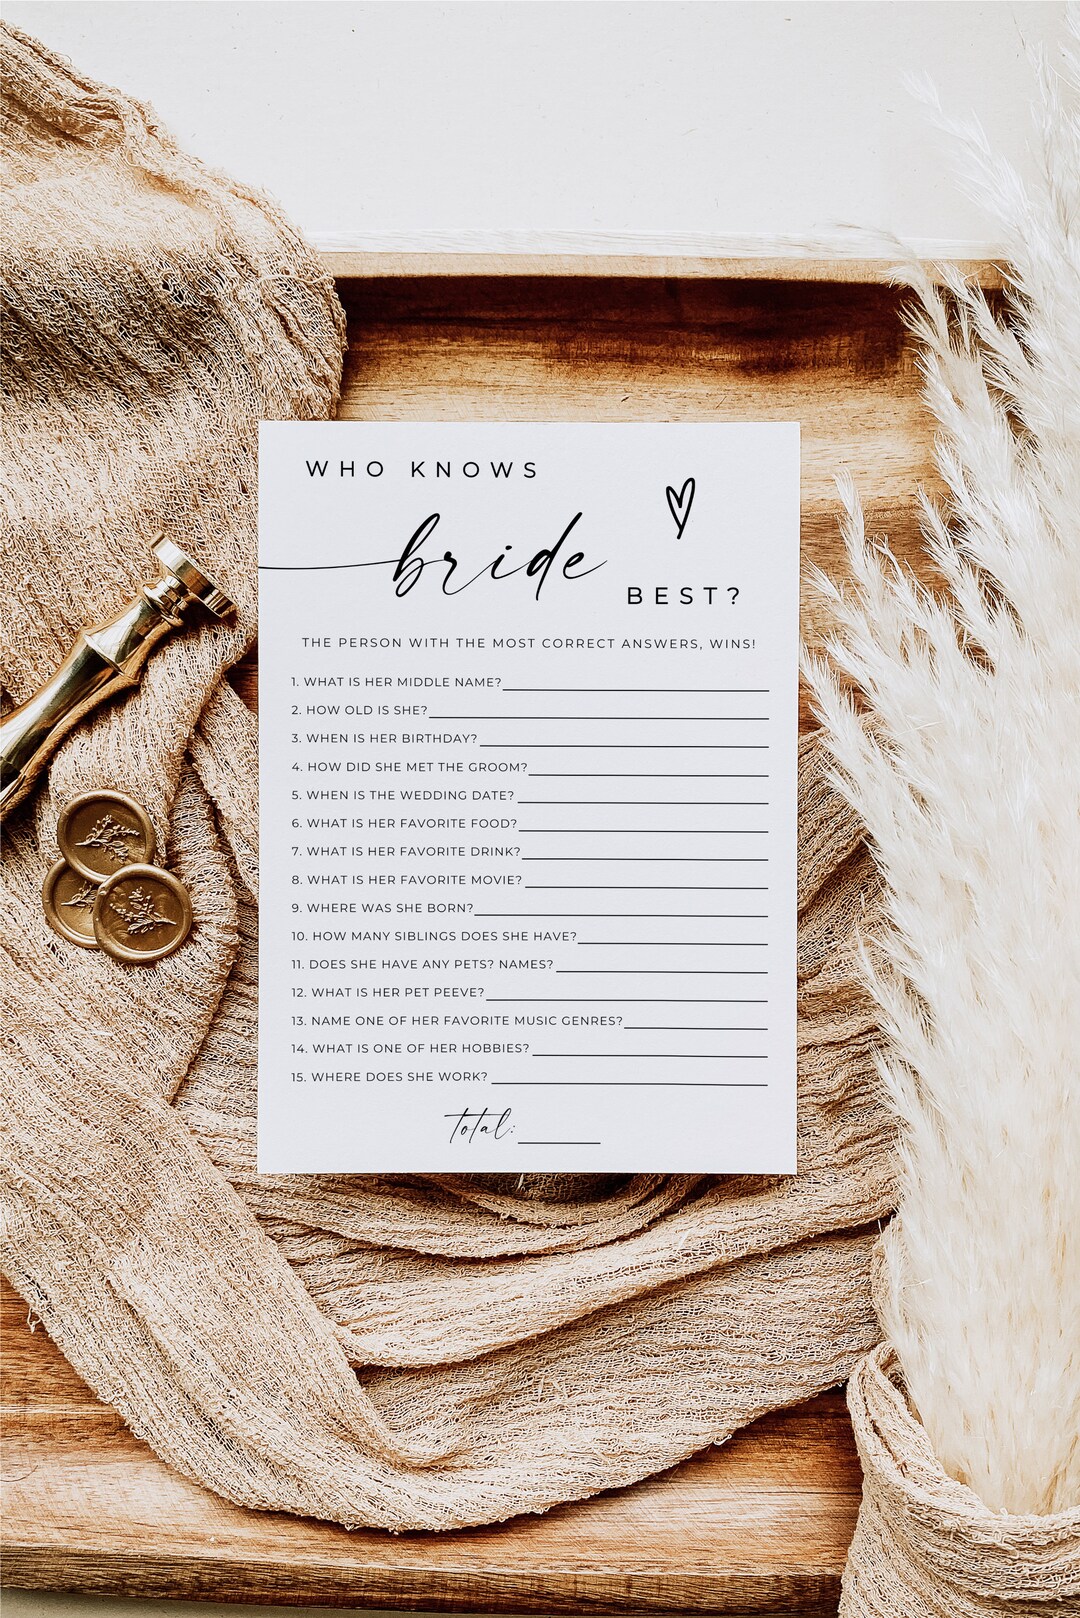 WHO KNOWS
bride
BEST?
THE PERSON WITH THE MOST CORRECT ANSWERS, WINS!
1. WHAT IS HER MIDDLE NAME?
2. HOW OLD IS SHE?
3. WHEN IS HER BIRTHDAY?
4. HOW DID SHE MET THE GROOM?
5. WHEN IS THE WEDDING DATE?
6. WHAT IS HER FAVORITE FOOD?
7. WHAT IS HER FAVORITE DRINK?
8. WHAT IS HER FAVORITE MOVIE?
9. WHERE WAS SHE BORN?
10. HOW MANY SIBLINGS DOES SHE HAVE?
11. DOES SHE HAVE ANY PETS? NAMES?
12. WHAT IS HER PET PEEVE?
13. NAME ONE OF HER FAVORITE MUSIC GENRES?
14. WHAT IS ONE OF HER HOBBIES?
15. WHERE DOES SHE WORK?
total: